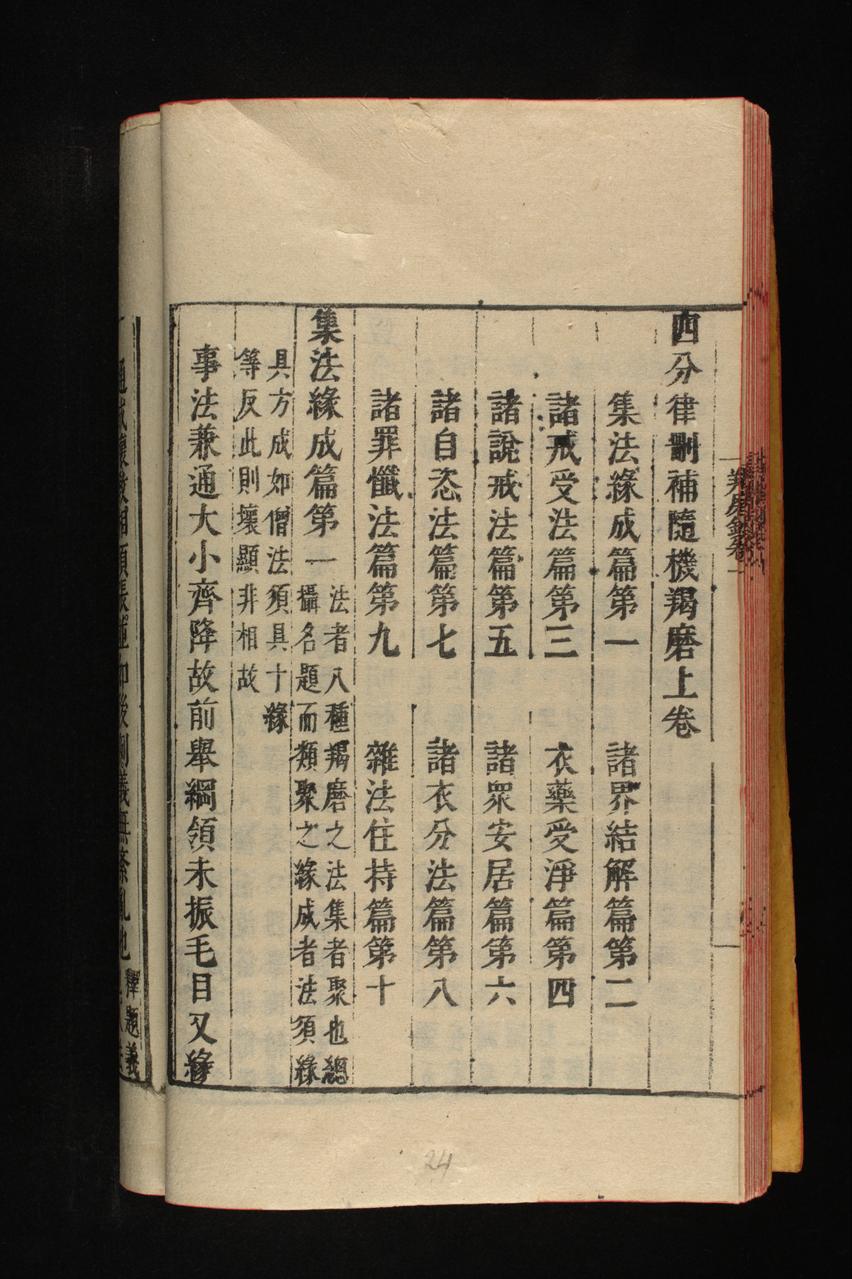 四分律刪補隨機羯磨上卷
集法緣成篇第一　諸界結解篇第二
諸戒受法篇第三　衣藥受淨篇第四
諸說戒法篇第五　諸眾安居篇第六
諸自恣法篇第七　諸衣分法篇第八
諸罪懺法篇第九　雜法住持篇第十
集法緣成篇第一
法者八種羯磨之法集者聚也總
攝名題而類聚之緣成者法須緣
具方成如僧法須具十緣
等反此則壞顯非相故
事法兼通大小齊降故前舉綱領未振毛目又緣
釋題義
24